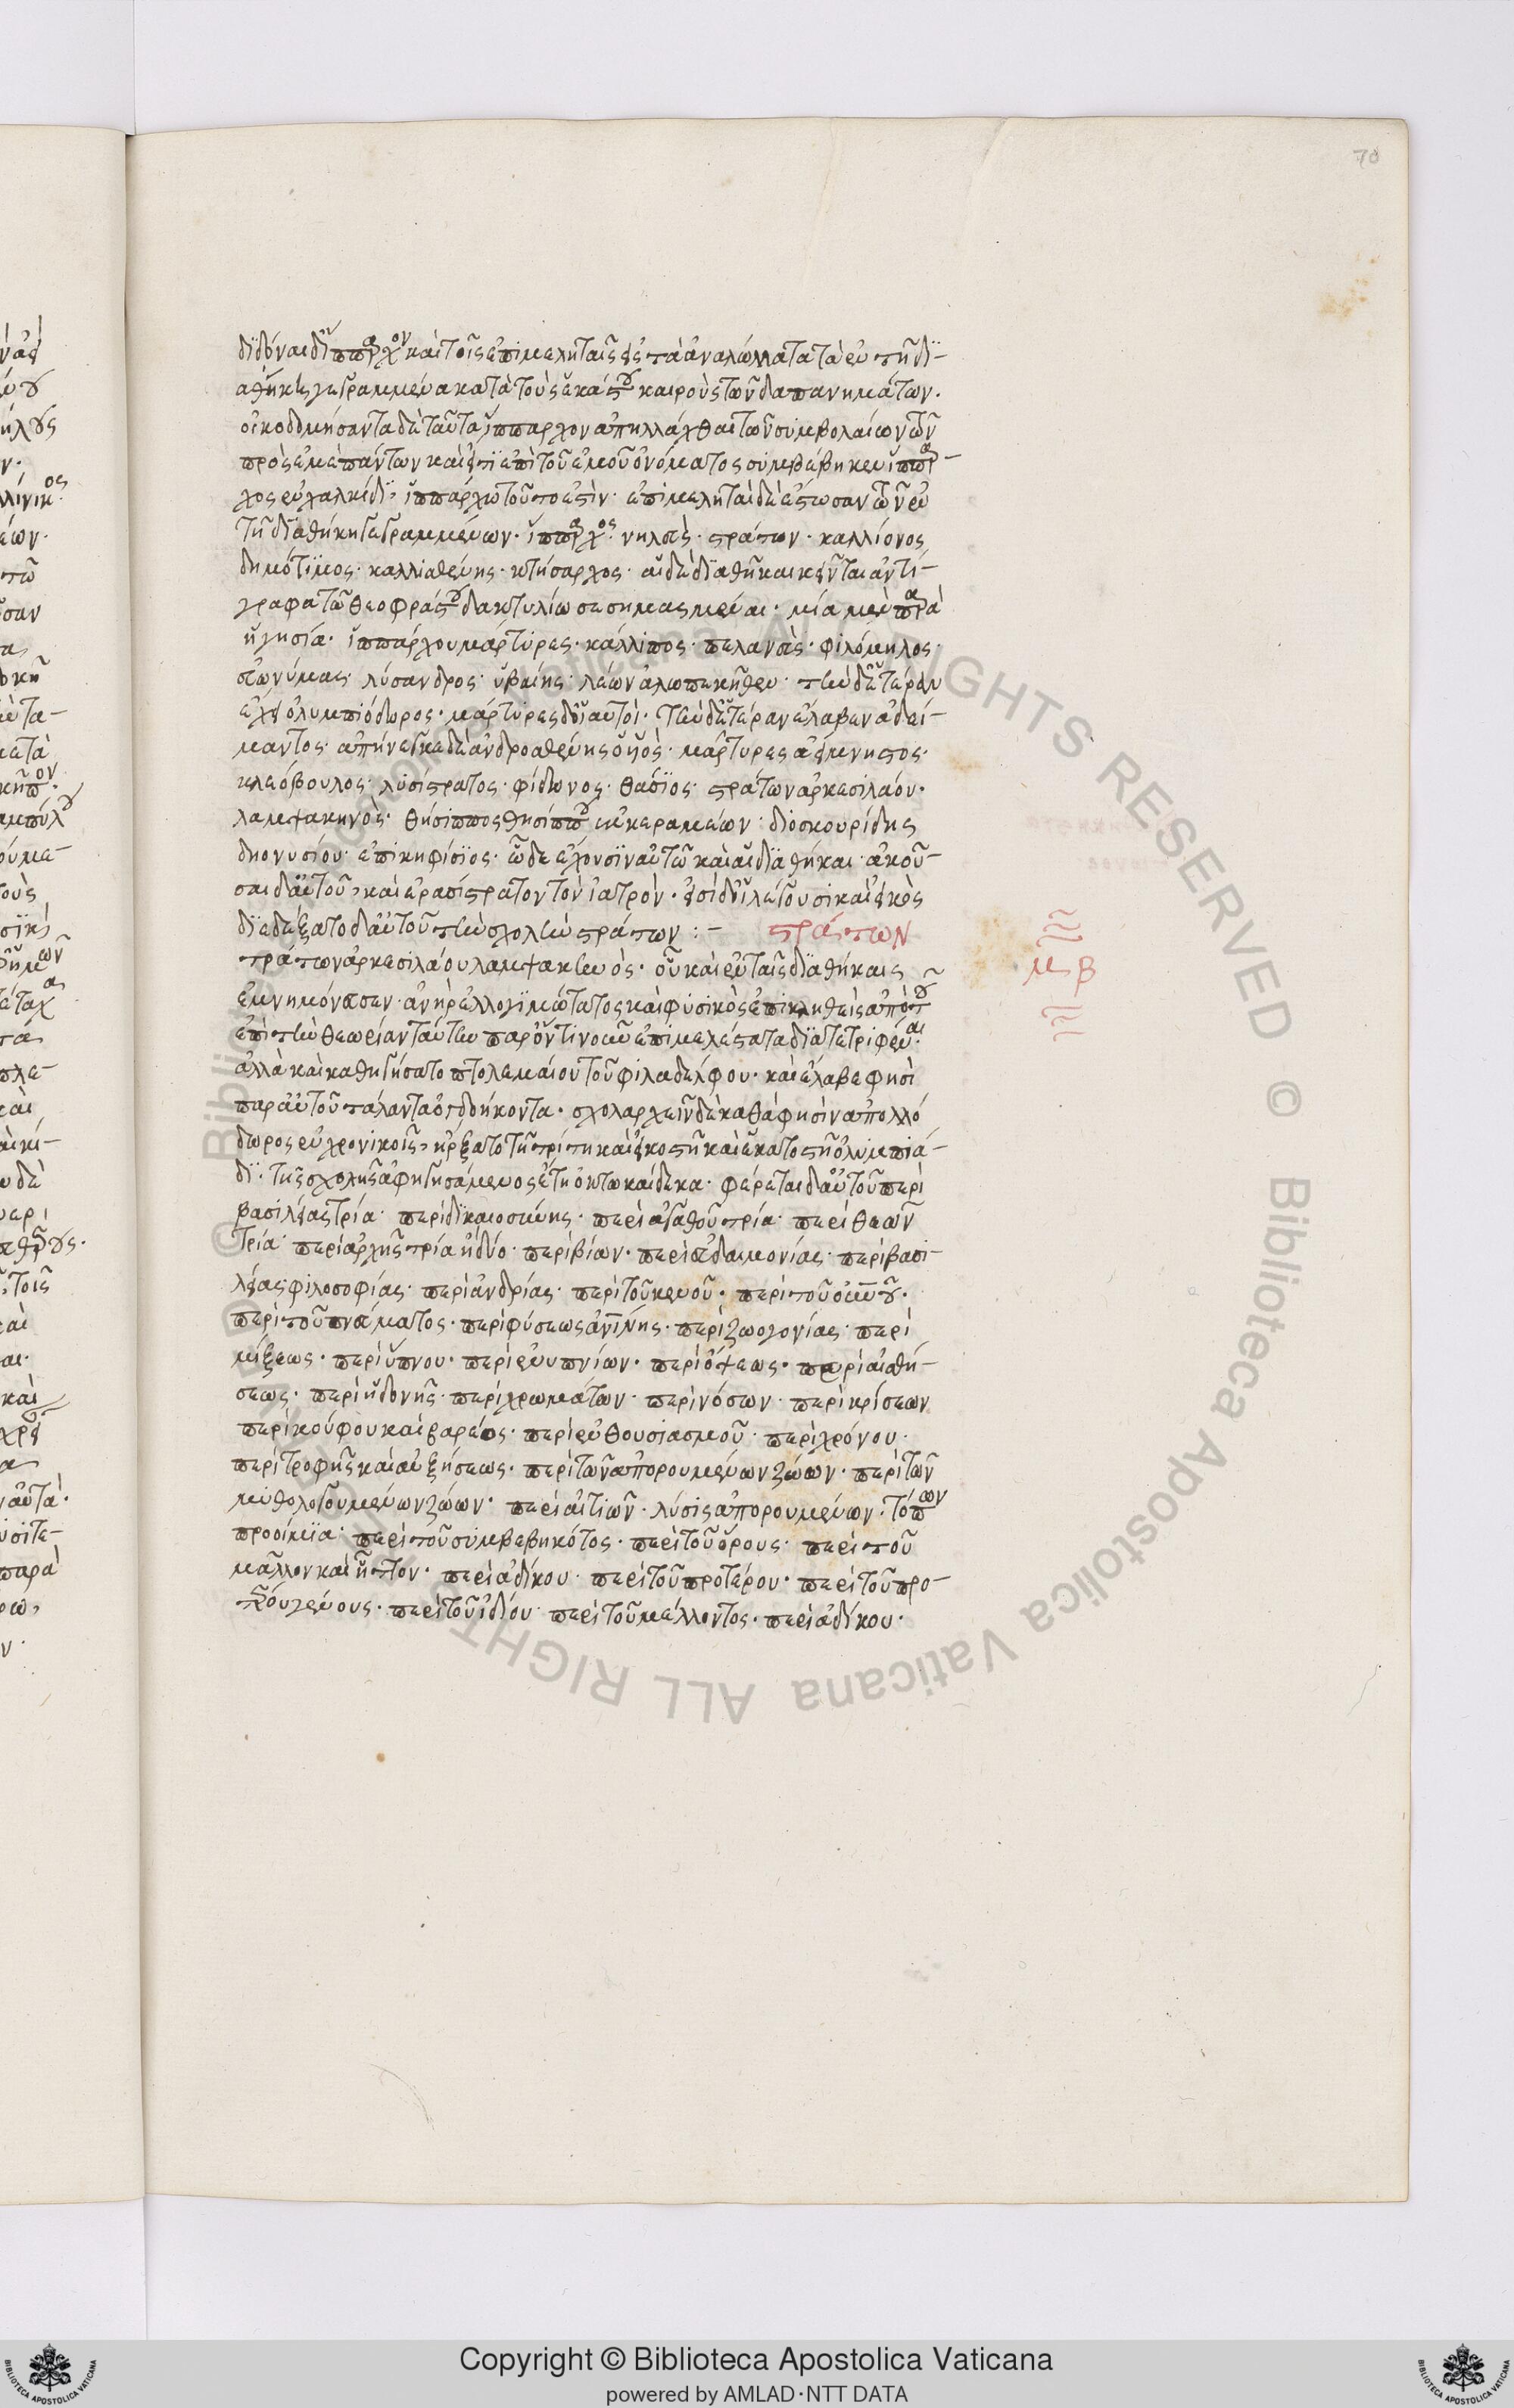 70
διδόναι δ' ἵππαρχον καὶ τοῖς ἐπιμεληταῖς εἰς τὰ ἀναλώματα τὰ ἐν τῇ δι-
αθήκῃ γεγραμμένα κατὰ τοὺς ἑκάστου καιροὺς τῶν δαπανημάτων.
οἰκοδομήσαντα δὲ ταῦτα ἵππαρχον ἀπηλλάχθαι τῶν συμβολαίων τῶν
πρὸς ἐμὲ πάντων καὶ εἴ τι ἐπὶ τοῦ ἐμοῦ ὀνόματος συμβέβηκεν ἵππαρ-
χος ἐν χαλκίδι, ἱππάρχω τοῦτο ἐστὶν. ἐπιμεληταὶ δὲ ἔστωσαν τῶν ἐν
τῇ διαθήκη γεγραμμένων. ἵππαρχος. νηλεὺς. στράτων. καλλίονος
δημότιμος. καλλισθένης. κτήσαρχος. αἱ δὲ διαθῆκαι κεῖνται ἀντί-
γραφα τῶ θεοφράστου δακτυλίω σεσημασμέναι. μία μὲν παρὰ
ἡγησία. ἱππάρχου μάρτυρες. κάλλιπος. πελανεὺς. φιλόμηλος.
εὐωνυμεὺς λύσανδρος. ὑβαίης. λέων ἀλωπεκῆθεν. τὴν δὲ ἑτέραν
ἔχει ὀλυμπιόδωρος. μάρτυρες δ' οἱ αὐτοί. τὴν δὲ ἑτέραν ἔλαβεν ἀδεί-
μαντος. ἀπήνεγκε δὲ ἀνδροσθένης ὁ υἱὸς. μάρτυρες ἀείμνηστος.
κλεόβουλος. λυσίστρατος. φίδωνος. θάσιος. στράτων ἀρκεσιλάου.
λαμψακηνὸς. θήσιππος θησίππου ἐκ κεραμέων. διοσκουρίδης
διονυσίου. ἐπικηφίσιος. ὧδε ἔχουσιν αὐτῶ καὶ αἱ διαθήκαι. ἀκοῦ-
σαι δ' αὐτοῦ, καὶ ἐρασίστρατον τὸν ἰατρὸν. εἰσὶ δ' οἳ λέγουσι καὶ εἰκὸς
διεδέξατο δ' αὐτοῦ τὴν σχολὴν στράτων :- στράτων
στράτων ἀρκεσιλάου λαμψακηνὸς. οὗ καὶ ἐν ταῖς διαθήκαις
μβ
ἐμνημόνευσεν. ἀνὴρ ἐλλογιμώτατος καὶ φυσικὸς ἐπικληθεὶς ἀπὸ τοῦ
ἐπὶ τὴν θεωρίαν ταύτην παρ' ὁντινοῦν ἐπιμελέστατα διατετριφέναι.
ἀλλὰ καὶ καθηγήσατο πτολεμαίου τοῦ φιλαδέλφου. καὶ ἔλαβε φησὶ
παρ' αὐτοῦ τάλαντα ὀγδοήκοντα. σχολαρχεῖν δὲ καθά φησὶν ἀπολλό
δωρος ἐν χρονικοῖς, ἤρξατο τῇ τρίτη καὶ εἰκοστῇ καὶ ἑκατοστῇ ὀλυμπιά-
δι. τῆς σχολῆς ἀφηγησάμενος ἔτη ὀκτωκαίδεκα. φέρεται δ' αὐτοῦ περὶ
βασιλείας τρία. περὶ δικαιοσύνης. περὶ ἀγαθοῦ τρία. περὶ θεῶν
τρία. περὶ ἀρχῆς τρία ἢ δύο. περὶ βίων. περὶ εὐδαιμονίας. περὶ βασι-
λείας φιλοσοφίας. περὶ ἀνδρίας. περὶ τοῦ κενοῦ. περὶ τοῦ οὐνοῦ.
περὶ τοῦ πνεύματος. περὶ φύσεως ἀνίνης. περὶ ζωογονίας. περὶ
μίξεως. περὶ ὕπνου. περὶ ἐνυπνίων. περὶ ὄψεως. περὶ αἰσθή-
σεως. περὶ ἡδονῆς. περὶ χρωμάτων. περὶ νόσων. περὶ κρίσεων
περὶ κούφου καὶ βαρέος. περὶ ἐνθουσιασμοῦ. περὶ χρόνου.
περὶ τροφῆς καὶ αὐξήσεως. περὶ τῶν ἀπορουμένων ζώων. περὶ τῶν
μυθολογουμένων ζώων. περὶ αἰτιῶν. λύσις ἀπορουμένων. τόπων
προοίμια. περὶ τοῦ συμβεβηκότος. περὶ τοῦ ὅρους. περὶ τοῦ
μᾶλλον καὶ ἧττον. περὶ ἀδίκου. περὶ τοῦ προτέρου. περὶ τοῦ προ-
τέρου γένους. περὶ τοῦ ἰδίου. περὶ τοῦ μέλλοντος. περὶ ἀδίκου.
Copyright © Biblioteca Apostolica Vaticana
powered by AMLAD·NTT DATA